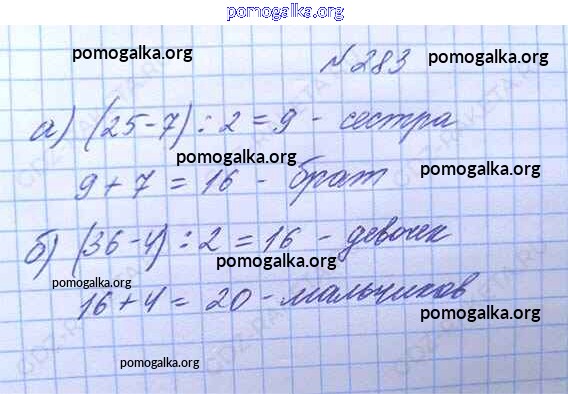 pomogalka.org
pomogalka.org
№ 283 pomogalka.org
а) (25-7) : 2 = 9 - сестра
pomogalka.org
9 + 7 = 16 - брат pomogalka.org
б) (36-4) : 2 = 16 - девочек
pomogalka.org
pomogalka.org
16 + 4 = 20 - мальчиков
pomogalka.org
pomogalka.org